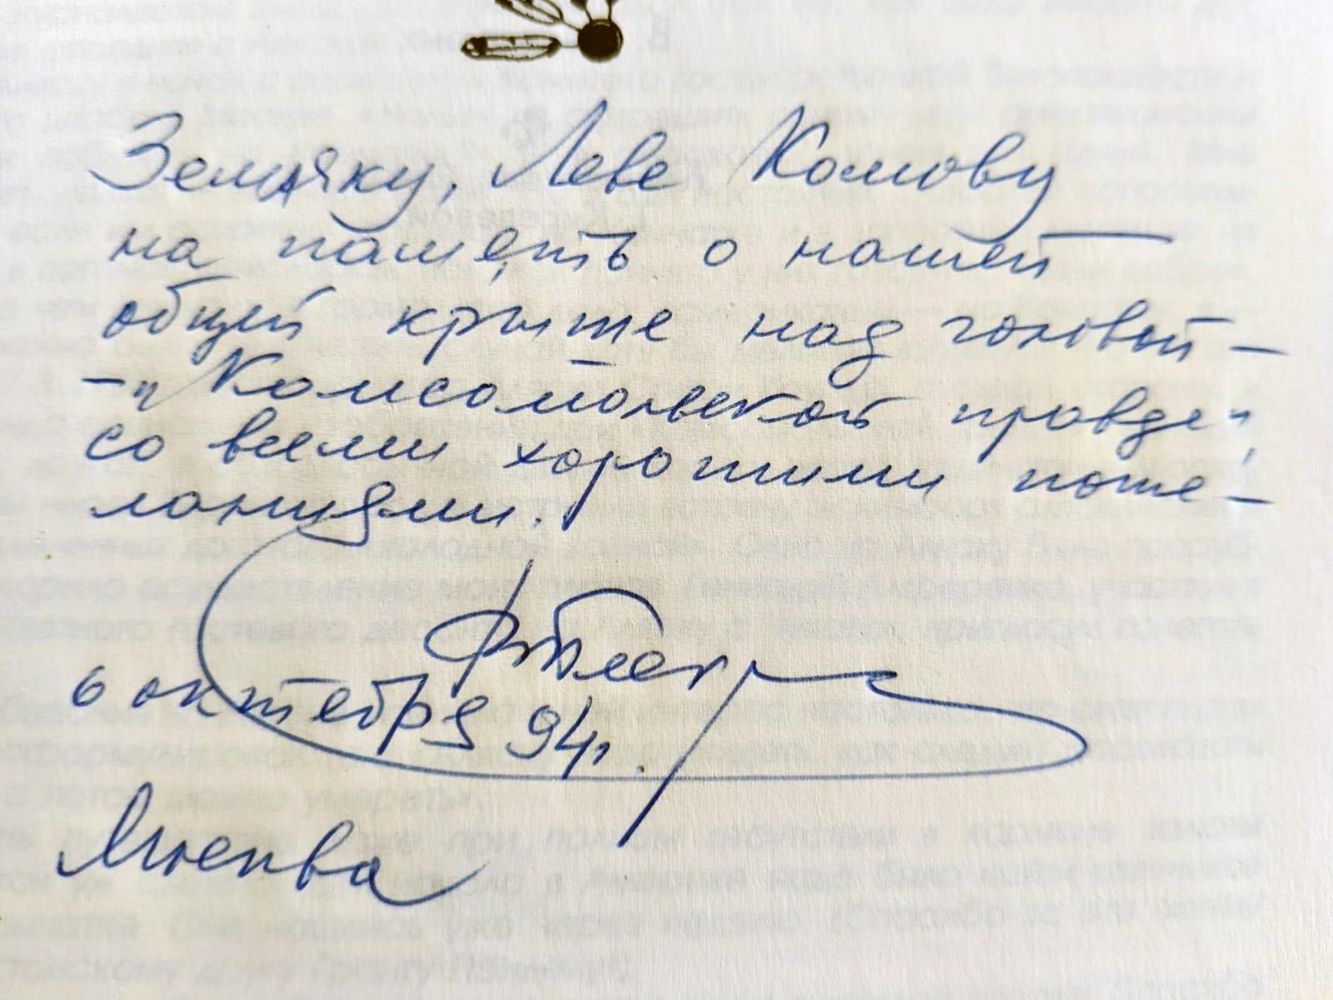 Земляку, Леве Комову
на память о нашей
общей крыше над головой –
– „Комсомольской правде",
со всеми хорошими поже-
ланиями.
6 октября 94г.
Москва